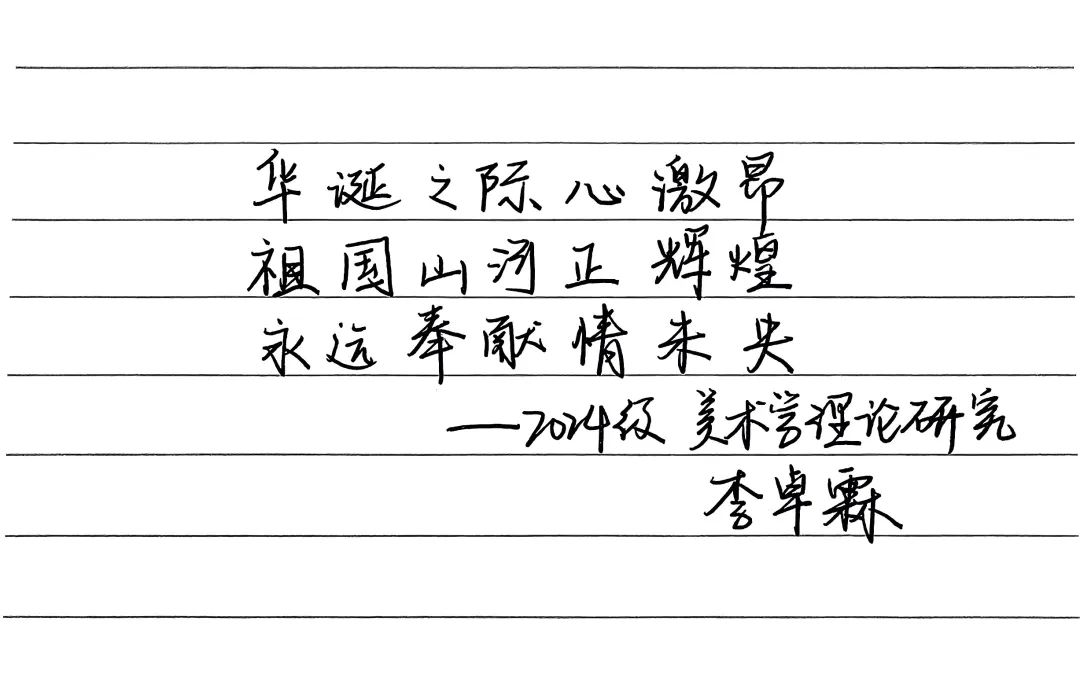 华诞之际心激昂
祖国山河正辉煌
永远奉献情未央
——2024级 美术学理论研究
李卓霖